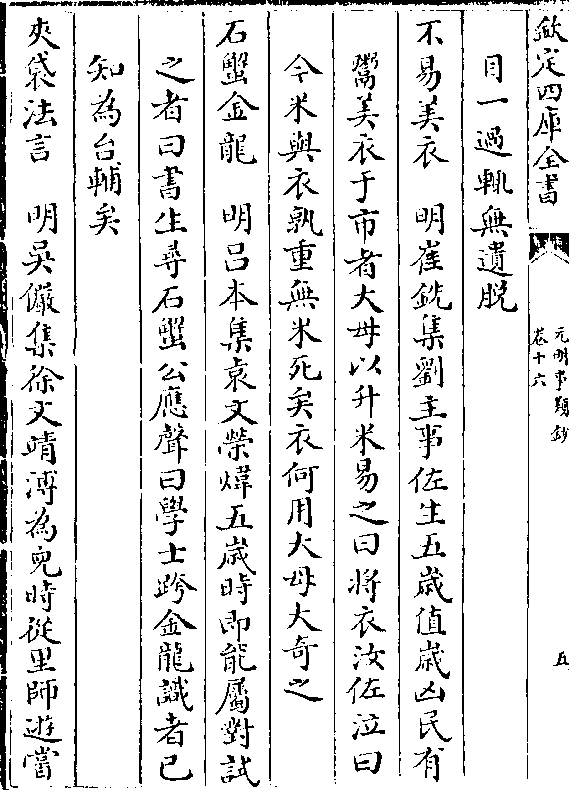 欽定四庫全書
元明事類鈔
卷十六
五
目一過輒無遺脫
不易美衣　明崔銑集劉主事佐生五歲值歲凶民有
鬻美衣于市者大母以升米易之曰將衣汝佐泣曰
今米與衣孰重無米死矣衣何用大母大奇之
石蟹金龍　明呂本集袁文榮煒五歲時即能屬對試
之者曰書生尋石蟹公應聲曰學士跨金龍識者已
知為台輔矣
夾袋法言　明吳儼集徐文靖溥為兒時從里師遊嘗